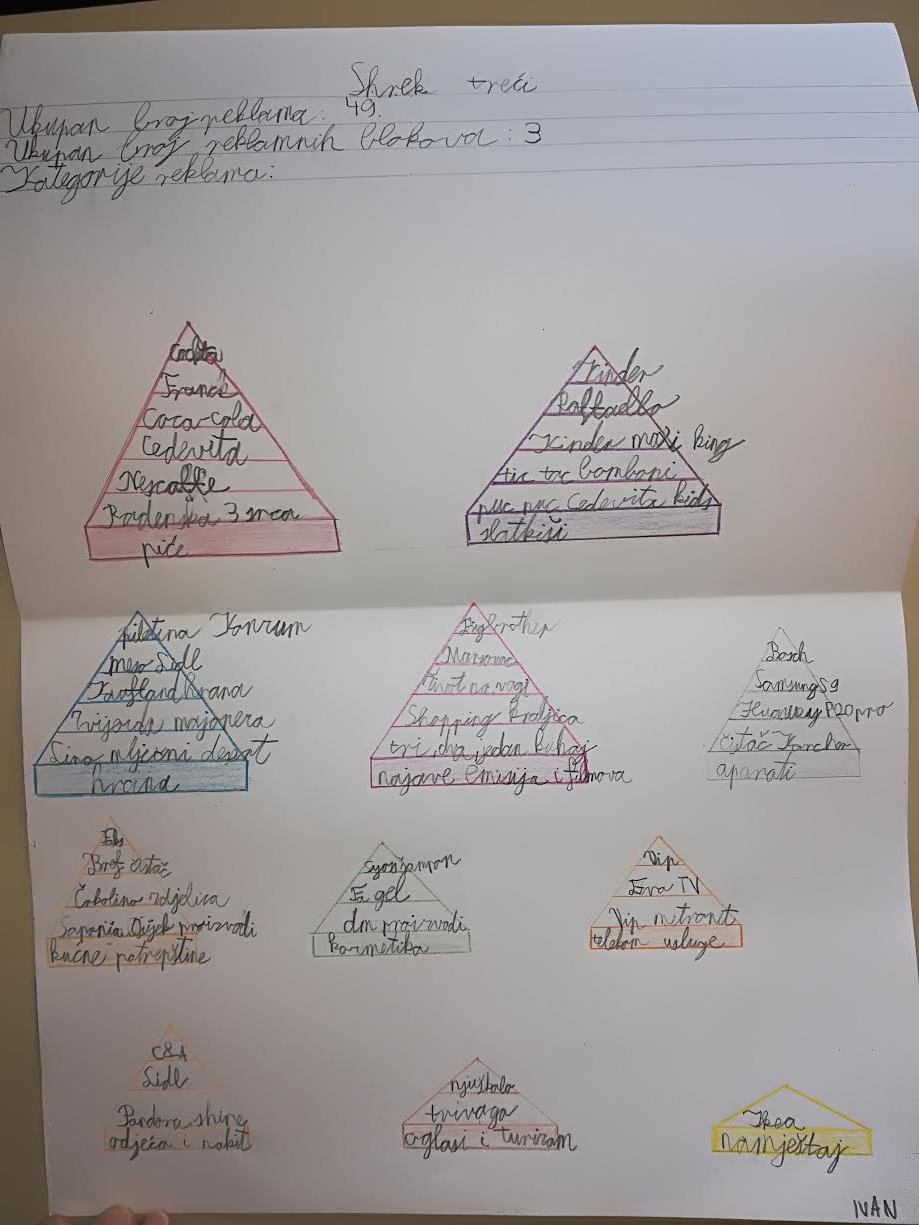 Shrek treći
Ukupan broj reklama: 49.
Ukupan broj reklamnih blokova: 3
Kategorije reklama:
Cockta
Franck
Coca-cola
Cedevita
Nescaffe
Radenska 3 srca
piće
Kinder
Raffaello
Kinder maxi king
tic tac bomboni
puc puc Cedevita kids
slatkiši
piletina Konzum
meso Lidl
Kaufland hrana
Zvijezda majoneza
Lino mlječni desert
hrana
Big brother
Život na vagi
Shopping kraljica
tri, dva, jedan kuhaj
najave emisija i filmova
Bosch
Samsung S9
Huawey P20 pro
čistač Karcher
aparati
Bref čistač
Čokolino zdjelica
Saponia Osijek proizvodi
kućne potrepštine
Syoss šampon
Fa gel
dm proizvodi
kozmetika
Vip
Evo TV
Vip netronit
telekom usluge
C&A
Lidl
Pandora shine
odjeća i nakit
njuškalo
trivago
oglasi i turizam
Ikea
namještaj
IVAN